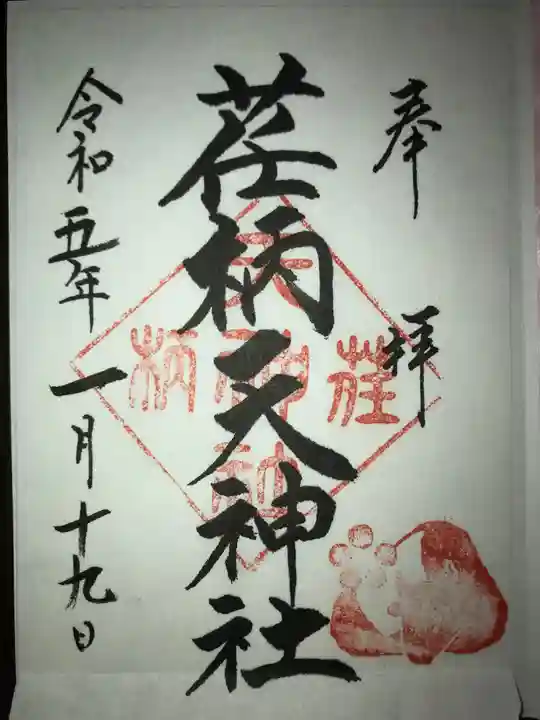 奉拝
荏柄天神社
令和五年一月十九日
荏
天
神
柄
社